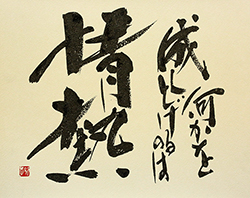 何かを
成しとげるのは
情熱